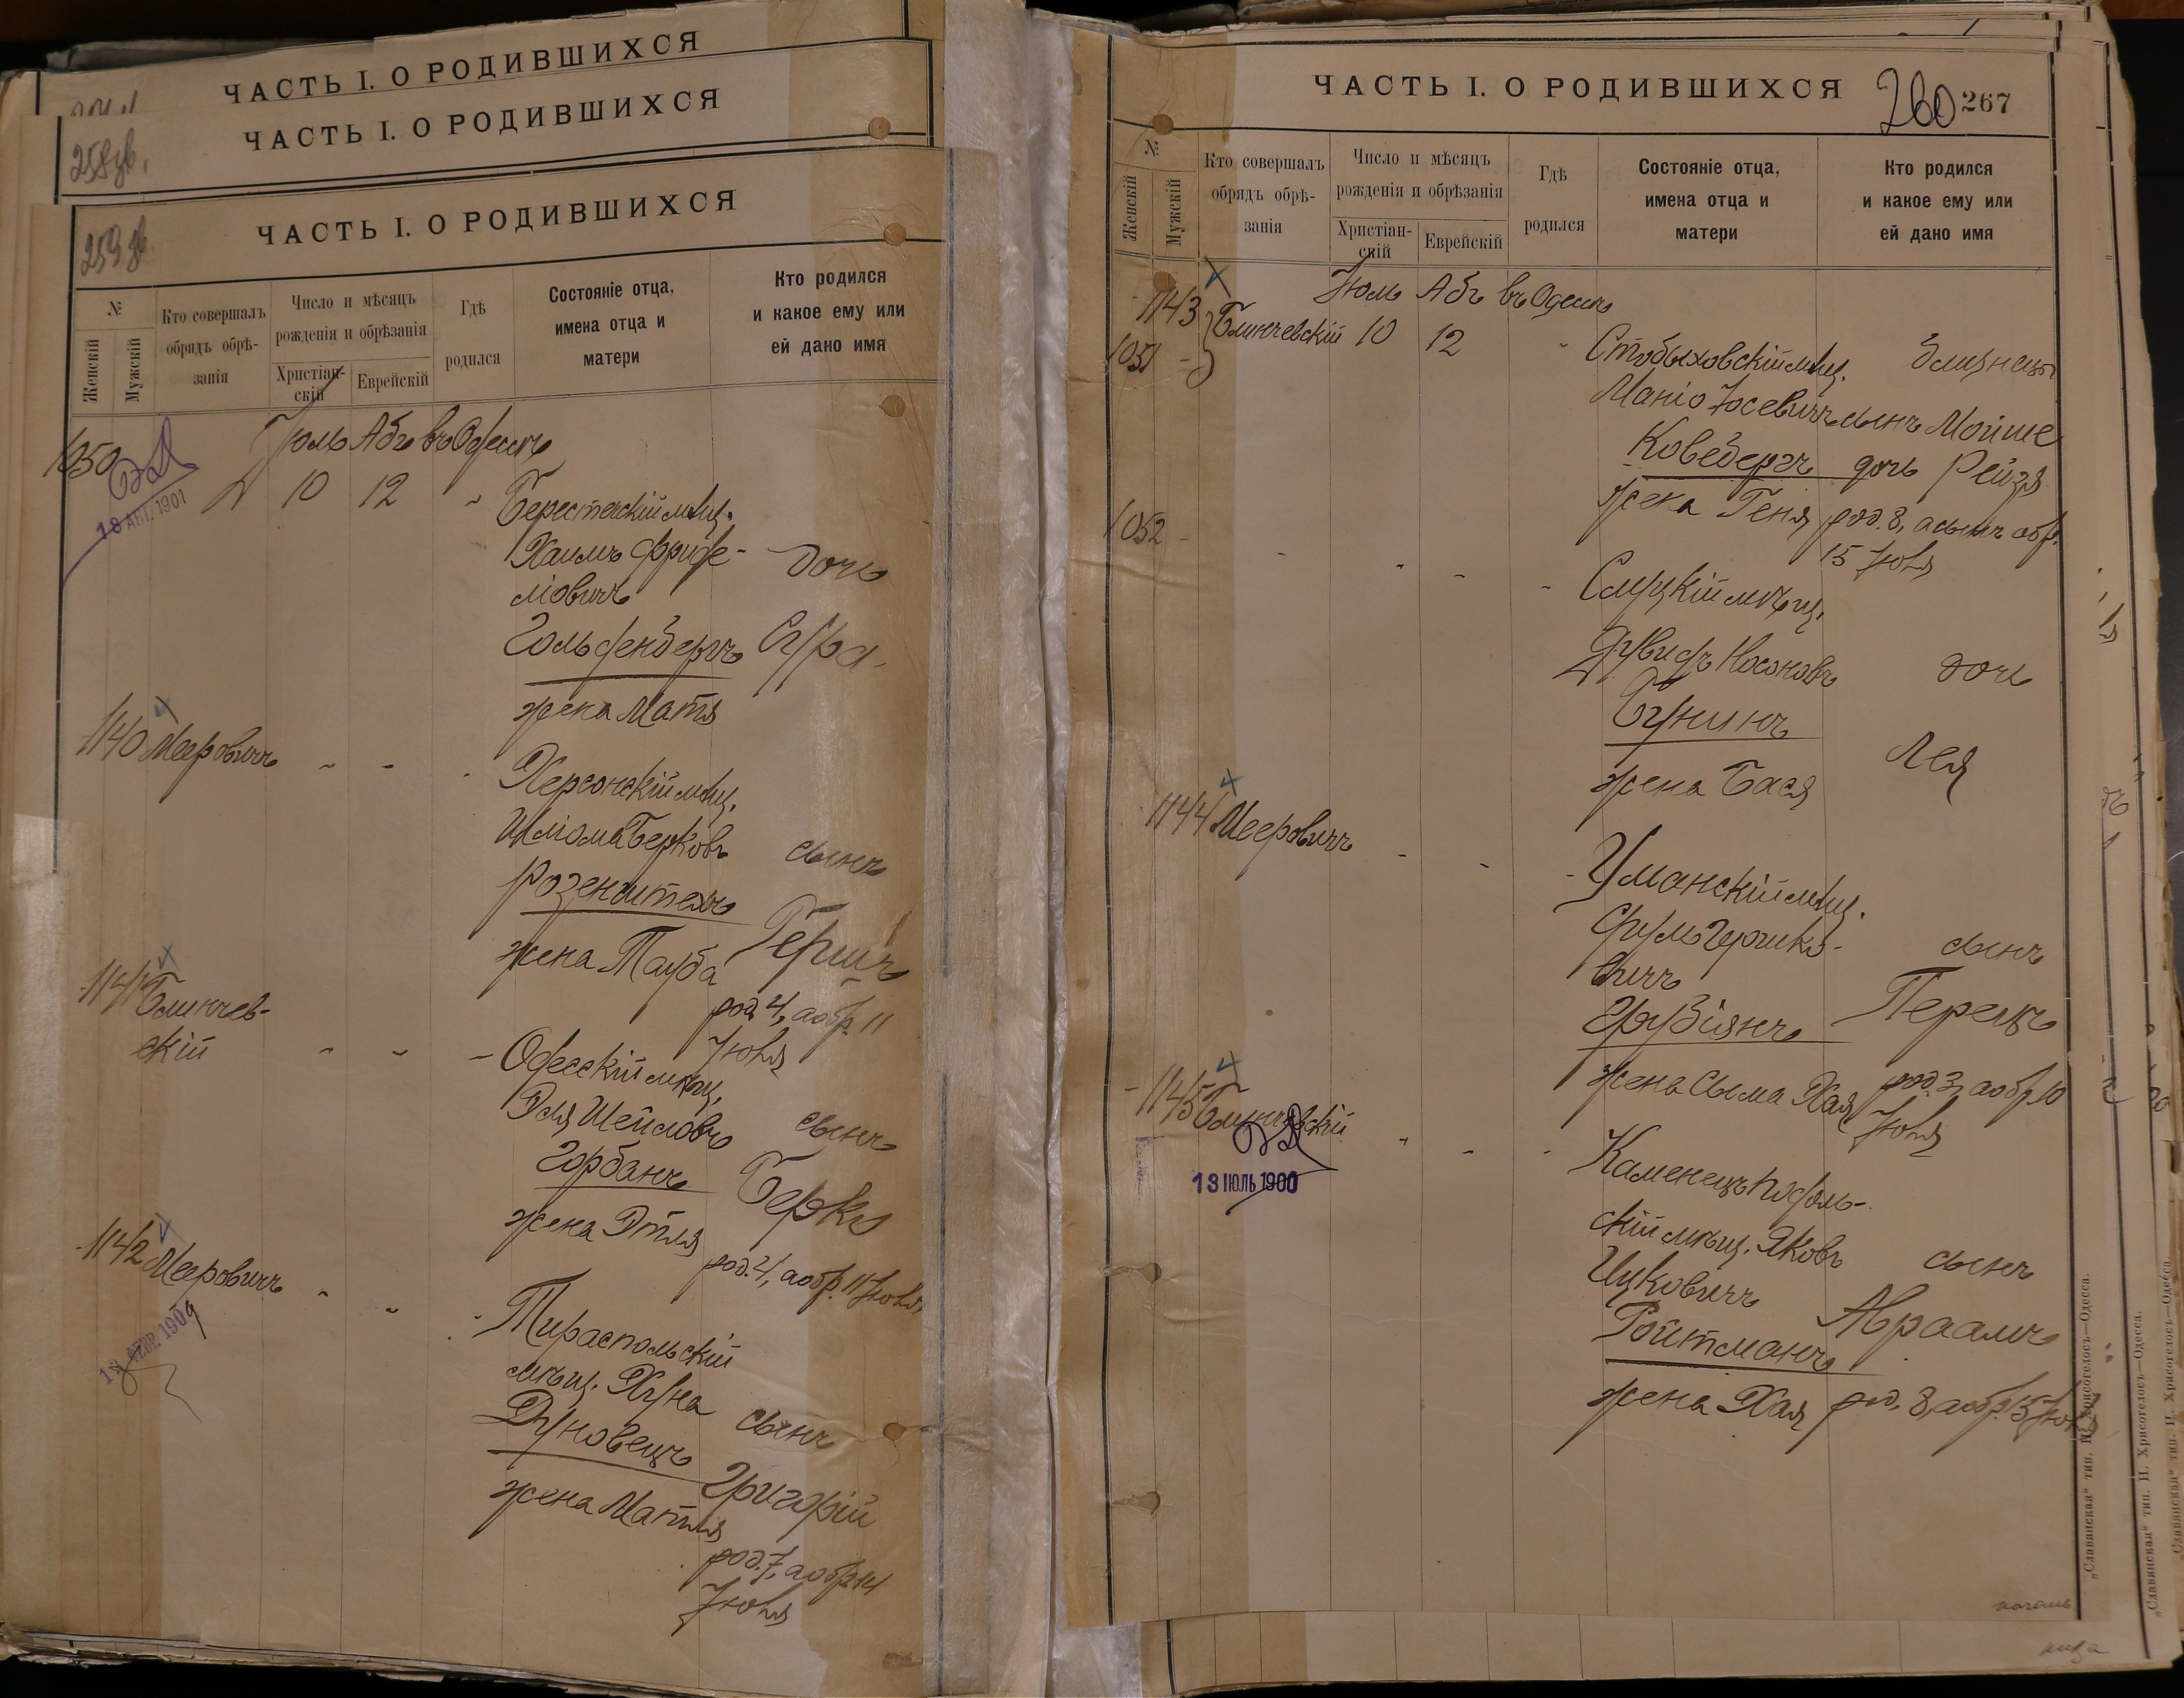 ЧАСТЬ I. О РОДИВШИХСЯ
ЧАСТЬ I. О РОДИВШИХСЯ
258 об.
ЧАСТЬ I. О РОДИВШИХСЯ
259 об
№
Женскій
Мужскій
Кто совершалъ
обрядъ обрѣ-
занія
Число и мѣсяцъ
рожденія и обрѣзанія
Христіан-
скій
Еврейскій
Гдѣ
родился
Состояніе отца,
имена отца и
матери
Кто родился
и какое ему или
ей дано имя
1050
Іюль Абъ въ Одессѣ
18 АВГ. 1901
10 12 "
Берестечскій мѣщ.
Хаимъ Фройе-
мовичъ
Гольденбергъ
жена Матя
дочь
Сура
1140 Мееровичъ " " "
Херсонскій мѣщ.
Шлёма Берковъ
Розенштехъ
жена Тауба
сынъ
Гершъ
род. 4, а обр. 11
Іюля
1141 Блинчев-
скій " " "
Одесскій мѣщ.
Эля Шейловъ
Горбанъ
жена Этля
сынъ
Берко
род. 4, а обр. 11 Іюля
1142 Мееровичъ " " "
Тираспольскій
мѣщ. Хуна
Дуновецъ
жена Матля
сынъ
Григорій
род. 7, а обр. 14
Іюля
ЧАСТЬ I. О РОДИВШИХСЯ
260 267
№
Женскій
Мужскій
Кто совершалъ
обрядъ обрѣ-
занія
Число и мѣсяцъ
рожденія и обрѣзанія
Христіан-
скій
Еврейскій
Гдѣ
родился
Состояніе отца,
имена отца и
матери
Кто родился
и какое ему или
ей дано имя
Іюль Абъ въ Одессѣ
1143
1051
Блинчевскій 10 12 "
Стобыховскій мѣщ.
Маніо Іосевичъ
Ковебергъ
жена Геня
близнецы
сынъ Мойше
дочь Рейзя
род. 8, а сынъ обр.
15 Іюля
1052 " " " "
Слуцкій мѣщ.
Дувидъ Носоновъ
Бунинъ
жена Бася
дочь
Лея
1144 Мееровичъ " "
Уманскій мѣщ.
Срулъ Гершко-
вичъ
Грубіянъ
жена Сыма Хая
сынъ
Перецъ
род. 3, а обр. 10
Іюля
1145 Блинчевскій " " "
13 ІЮЛЬ 1900
Каменецъ Подоль-
скій мѣщ. Яковъ
Ицковичъ
Ройтманъ
жена Хая
сынъ
Авраамъ
род. 8, а обр. 15 Іюля
„Славянская“ тип. Н. Хрисогелосъ—Одесса.
„Славянская“ тип. Н. Хрисогелосъ—Одесса.
„Славянская“ тип. Н. Хрисогелосъ—Одесса.